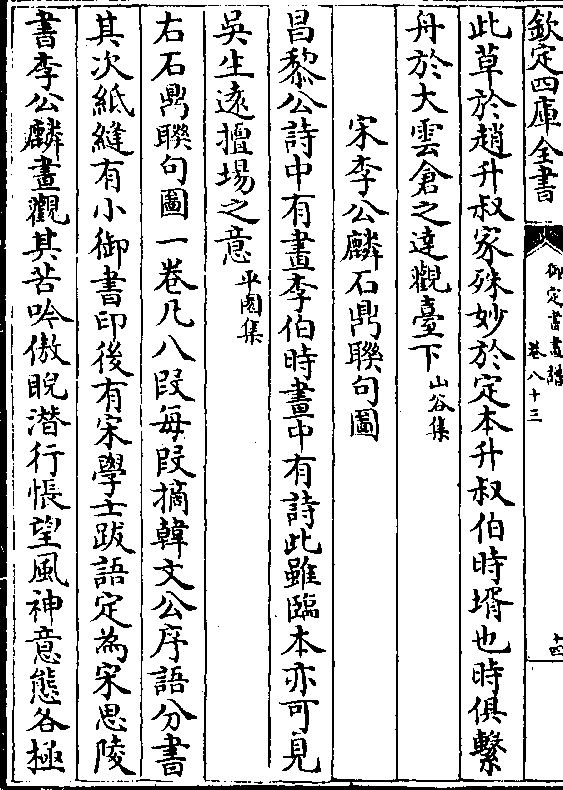 欽定四庫全書
御定書畫譜
卷八十三
十四
此草於趙升叔家殊妙於定本升叔伯時壻也時俱繫
舟於大雲倉之達觀臺下山谷集
宋李公麟石鼎聨句圖
昌黎公詩中有畫李伯時畫中有詩此雖臨本亦可見
吳生遠擅場之意平園集
右石鼎聨句圖一卷凡八段每段摘韓文公序語分書
其次紙縫有小御書印後有宋學士跋語定為宋思陵
書李公麟畫觀其苦吟傲睨潜行悵望風神意態各極